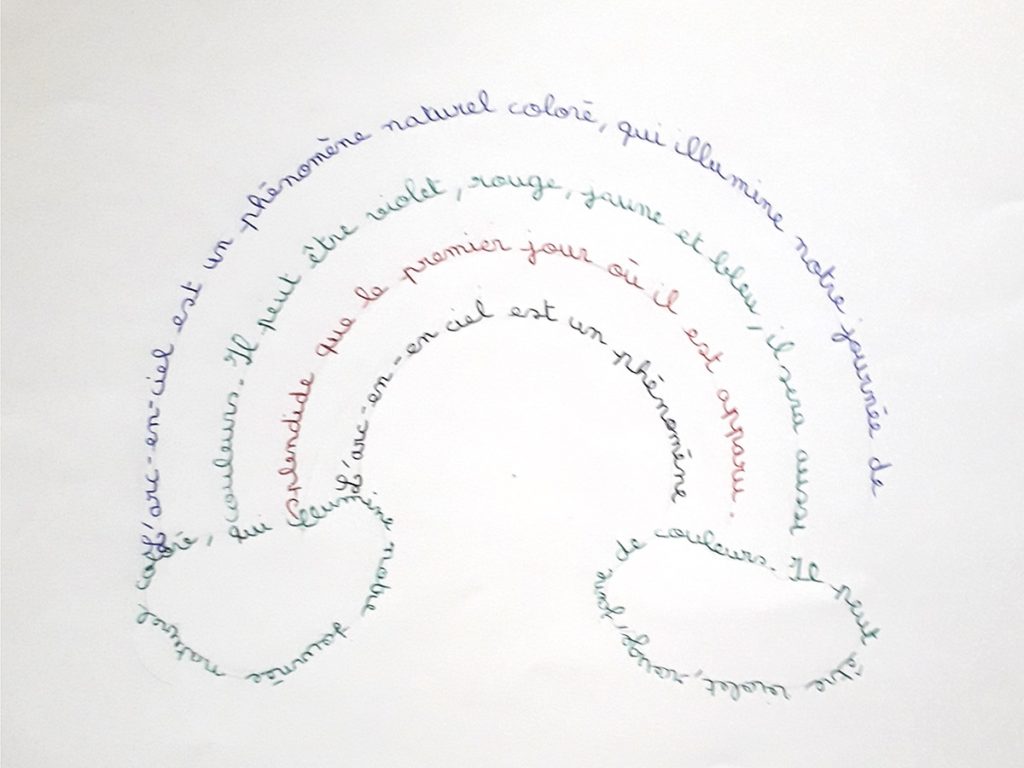 L'arc-en-ciel est un phénomène naturel coloré, qui illumine notre journée de
couleurs. Il peut être violet, rouge, jaune et bleu, il sera aussi
splendide que le premier jour où il est apparu.
L'arc-en-en ciel est un phénomène
naturel coloré, qui illumine notre journée
de couleurs. Il peut être violet, rouge,